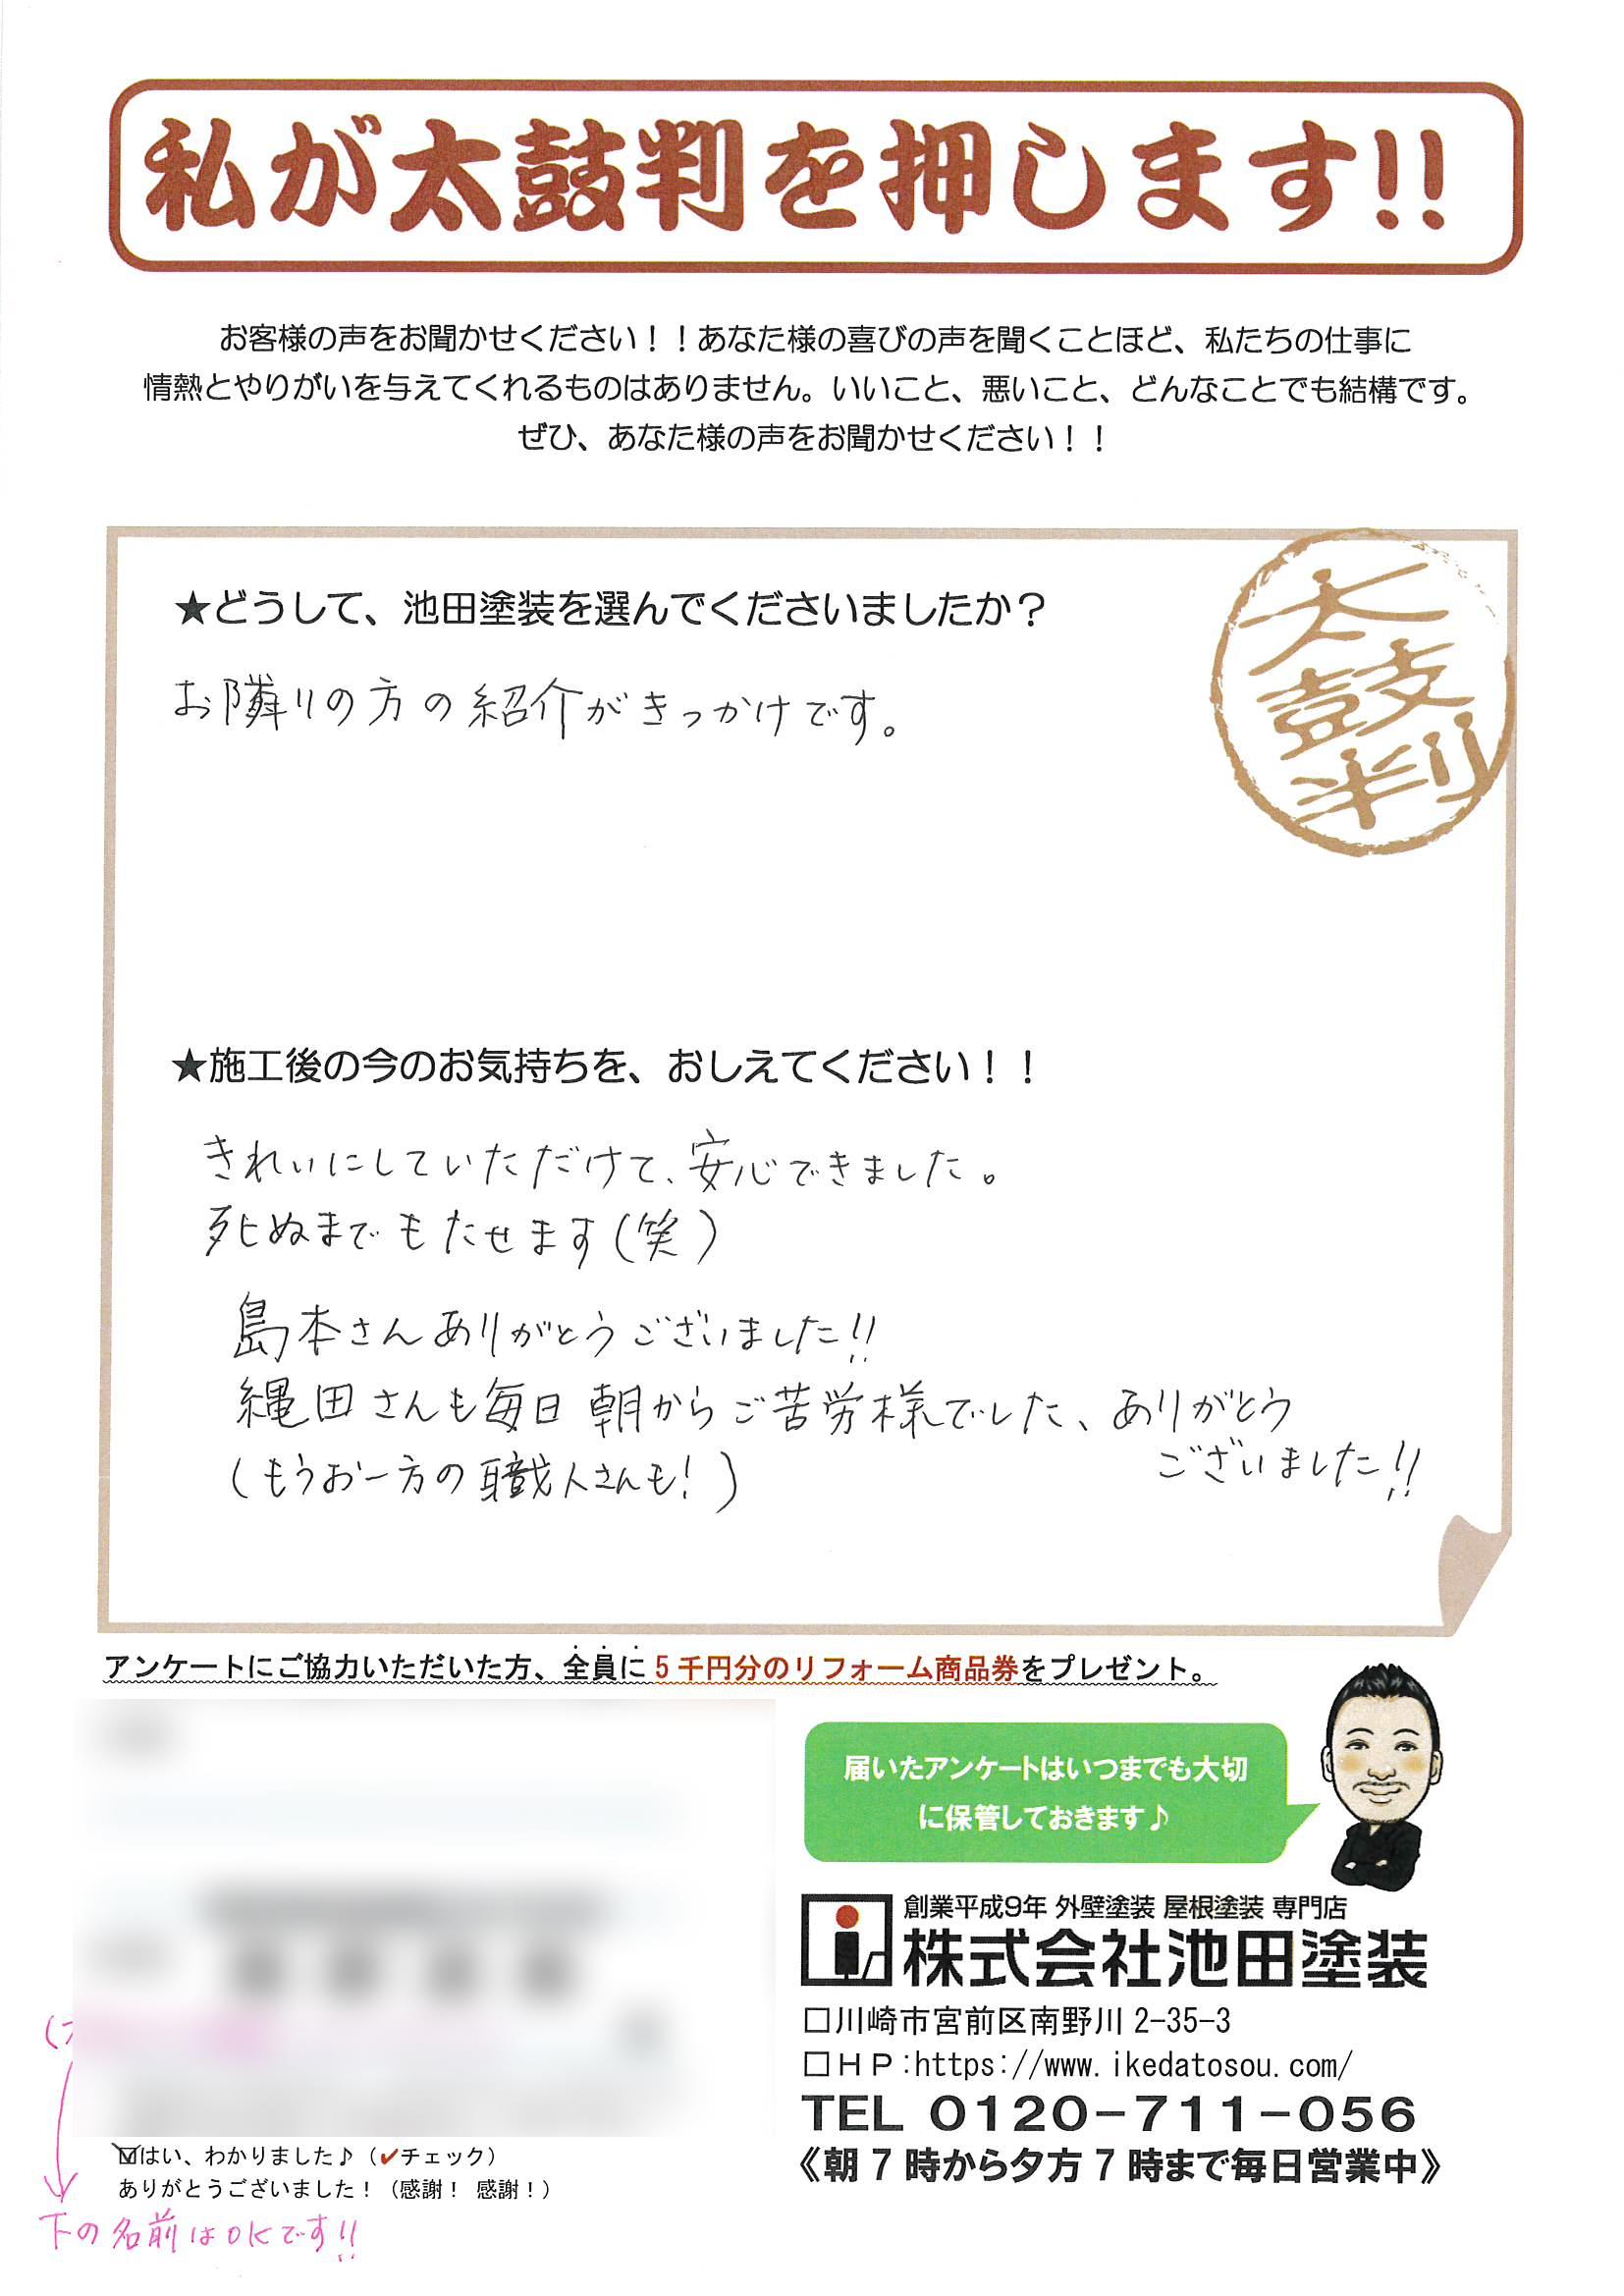 私が太鼓判を押します!!
お客様の声をお聞かせください！！あなた様の喜びの声を聞くことほど、私たちの仕事に
情熱とやりがいを与えてくれるものはありません。いいこと、悪いこと、どんなことでも結構です。
ぜひ、あなた様の声をお聞かせください！！
太
鼓
判
★どうして、池田塗装を選んでくださいましたか？
お隣りの方の紹介がきっかけです。
★施工後の今のお気持ちを、おしえてください！！
きれいにしていただけて、安心できました。
死ぬまでもたせます(笑)
島本さんありがとうございました!!
縄田さんも毎日朝からご苦労様でした、ありがとう
ございました!!
(もうお一方の職人さんも!)
アンケートにご協力いただいた方、全員に5千円分のリフォーム商品券をプレゼント。
届いたアンケートはいつまでも大切
に保管しておきます♪
創業平成9年 外壁塗装 屋根塗装 専門店
株式会社池田塗装
□川崎市宮前区南野川 2-35-3
□ＨＰ:https://www.ikedatosou.com/
TEL 0120-711-056
《朝７時から夕方７時まで毎日営業中》
☑はい、わかりました♪（✔チェック）
ありがとうございました！（感謝！ 感謝！）
下の名前はOKです!!